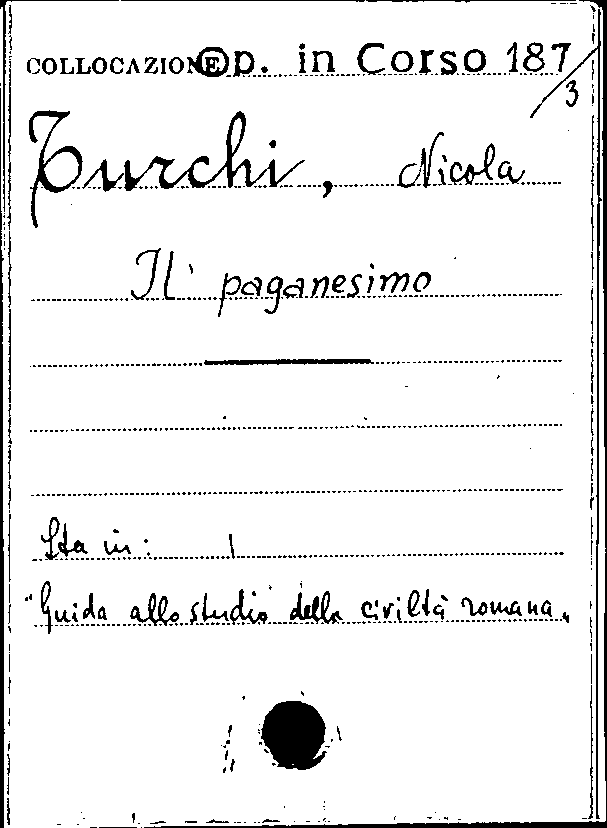 COLLOCAZIONE Op. in Corso 187/3
Turchi, Nicola
Il paganesimo
Sta in:
"Guida allo studio della civiltà romana"